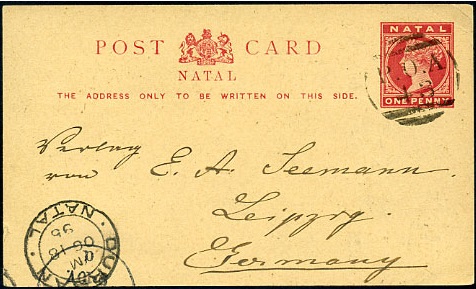 POST CARD
NATAL
THE ADDRESS ONLY TO BE WRITTEN ON THIS SIDE.
NATAL
ONE PENNY
Verlag
von E. A. Seemann.
Leipzig
Germany
DURBAN · NATAL
OC 18
98